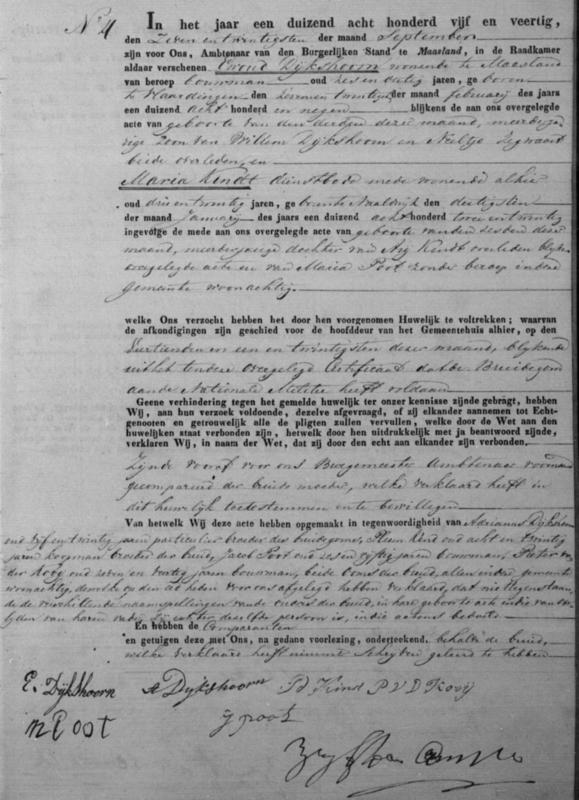 N° 4
In het jaar een duizend acht honderd vijf en veertig,
den Zeven en twintigsten der maand September
zijn voor Ons, Ambtenaar van den Burgerlijken Stand te Maasland, in de Raadkamer
aldaar verschenen Dijkshoorn wonende te Maasland
van beroep bouwman oud zes en dertig jaren, geboren
te Vlaardingen den der maand february des jaars
een duizend acht honderd en negen blijkens de aan ons overgelegde
acte van geboorte van den deze maand, meerderja
rige zoon van Willem Dijkshoorn en Neeltje
beide overleden, en
Maria Kindt dienstbode mede wonende alhier
oud drie en twintig jaren, geboren te Naaldwijk den dertigsten
der maand January des jaars een duizend acht honderd twee en twintig
ingevolge de mede aan ons overgelegde acte van geboorte van den zesden deze
maand, meerderjarige dochter van Arij Kindt overleden blijkens
overgelegde acte en van Maria Poot zonder beroep in deze
gemeente woonachtig.
welke Ons verzocht hebben het door hen voorgenomen Huwelijk te voltrekken; waarvan
de afkondigingen zijn geschied voor de hoofddeur van het Gemeentehuis alhier, op den
Veertienden en een en twintigsten dezer maand, blijkende
uit het overgelegd Certificaat dat de Bruidegom
aan de Nationale Militie heeft voldaan
Geene verhindering tegen het gemelde huwelijk ter onzer kennisse zijnde gebrägt, hebben
Wij, aan hun verzoek voldoende, dezelve afgevraagd, of zij elkander aannemen tot Echt-
genooten en getrouwelijk alle de pligten zullen vervullen, welke door de Wet aan den
huwelijken staat verbonden zijn, hetwelk door hen uitdrukkelijk met ja beantwoord zijnde,
verklaren Wij, in naam der Wet, dat zij door den echt aan elkander zijn verbonden.
Zijnde vooraf voor ons Burgemeester Ambtenaar voornoemd
gecompareerd der bruids moeder, welke verklaard heeft in
dit huwelijk toetestemmen en te bewilligen
Van hetwelk Wij deze acte hebben opgemaakt in tegenwoordigheid van Adrianus Dijkshoorn
oud vijf en twintig jaren particulier broeder des bruidegoms, Kind oud acht en twintig
jaren koopman broeder der bruid, Jacob Poot oud zes en vijftig jaren bouwman, Pieter van
der Kooij oud zeven en veertig jaren bouwman, beide ooms der bruid, allen in deze gemeente
woonachtig, dewelke voor ons afgelegd hebben verklaard, dat niettegenstaande
de verschillende naamspellingen van de ouders der bruid, in hare geboorte acte en die van over
lijden van haren vader, echter dezelfde persoon is, in die actens bedoeld.
En hebben de Comparanten
en getuigen deze met Ons, na gedane voorlezing, onderteekend, behalve de bruid,
welke verklaare heeft nimmer schrijven geleerd te hebben
E. Dijkshoorn A Dijkshoorn P Kind P V D Kooij
M Poot J poot